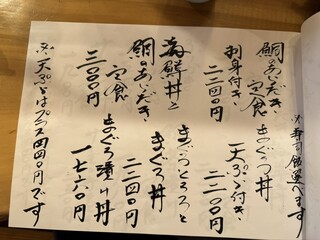 ※寿司飯選べます
鯛のあいだき・まぐろ丼
定食 天ぷら付き・
刺身付き・ 二二〇〇円
二二〇〇円
海鮮丼と まぐろとろろと
鯛のあいだき まぐろ丼
定食 二二四〇円
三一〇〇円 まぐろ漬け丼
一七六〇円
※天ぷらはプラス四四〇円です